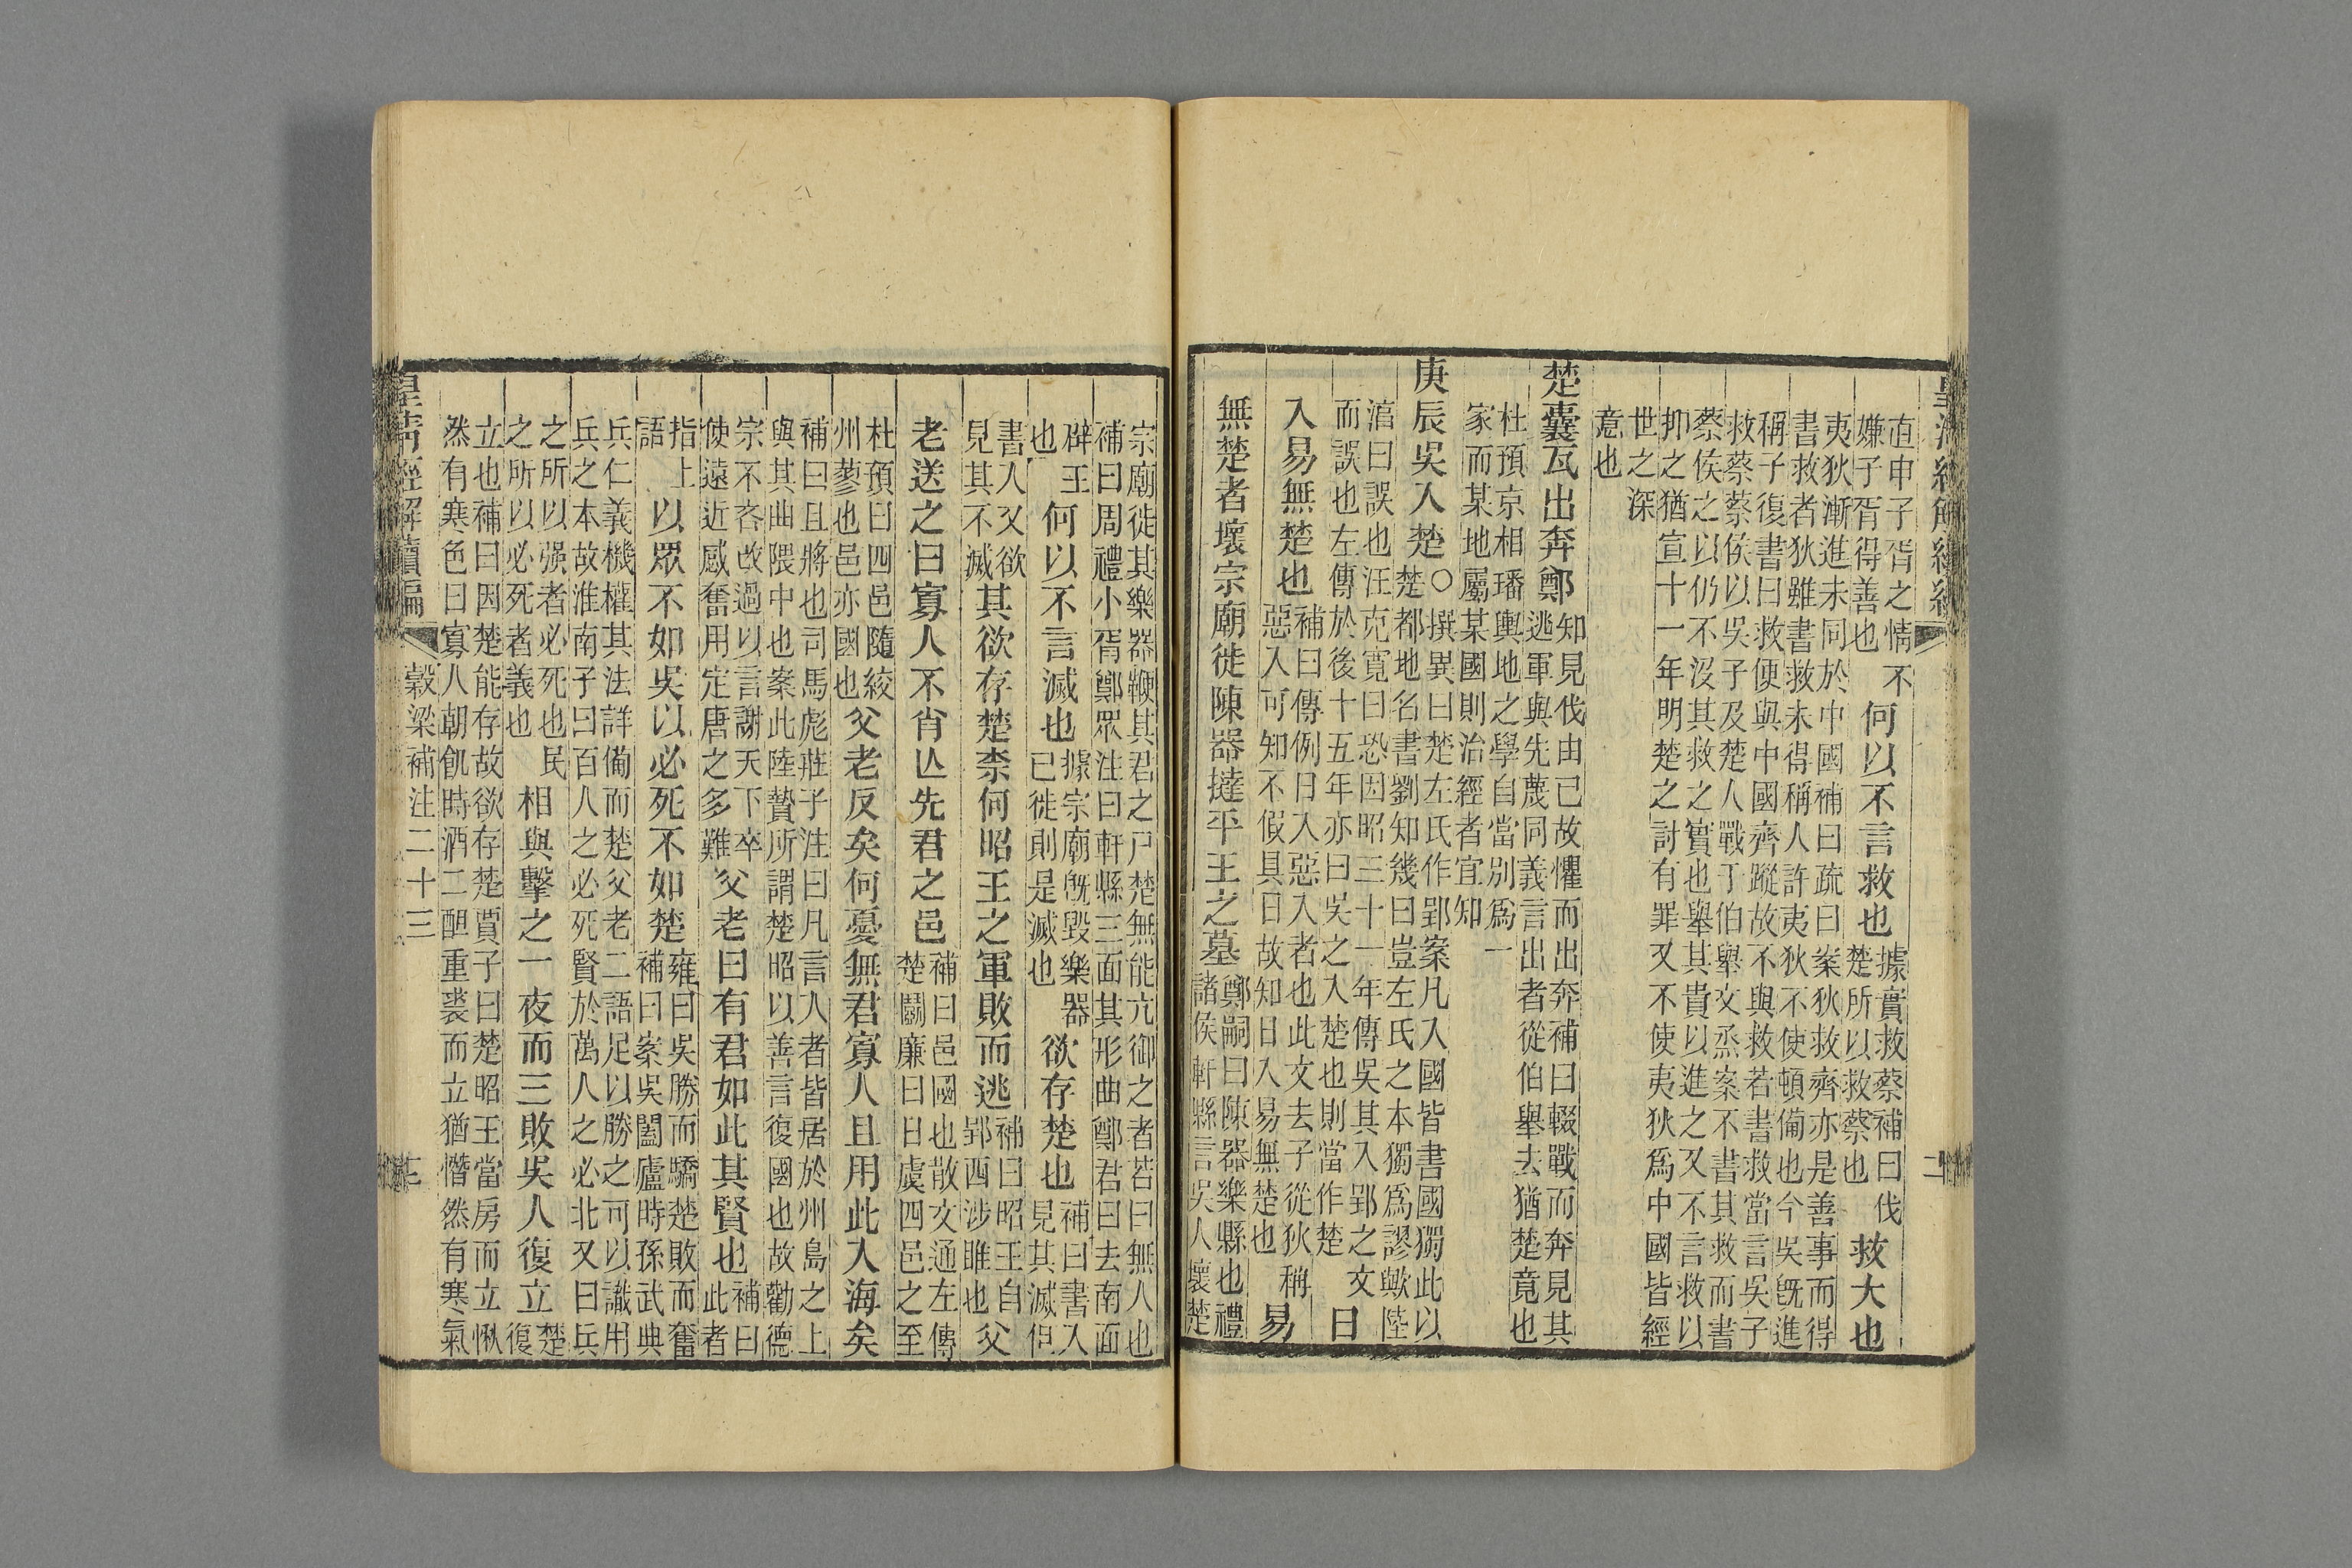 皇清經解續編 二
直申子胥之情不嫌子胥得善也何以不言救也據實救蔡補曰伐楚所以救蔡也救大也
夷狄漸進未同於中國補曰疏曰案狄救齊亦是善事而得
書救者狄雖書救未得稱人許夷狄不使頓備也今吳既進
稱子復書曰救便與中國齊蹤故不與救若書救當言吳子
救蔡蔡侯以吳子及楚人戰于伯舉文烝案不書其救而書
蔡侯之以仍不沒其救之實也舉其貴以進之又不言救以
抑之猶宣十一年明楚之討有罪又不使夷狄爲中國皆經
世之深
意也
楚囊瓦出奔鄭知見伐由已故懼而出奔補曰輟戰而奔見其逃軍與先蔑同義言出者從伯舉去猶楚竟也
杜預京相璠輿地之學自當別爲一
家而某地屬某國則治經者宜知
庚辰吳入楚○撰異曰楚左氏作郢案凡入國皆書國獨此以楚都地名書劉知幾曰豈左氏之本獨爲謬歟陸
湻曰誤也汪克寬曰恐因昭三十一年傳吳其入郢之文而誤也左傳於後十五年亦曰吳之入楚也則當作楚日
入易無楚也補曰傳例日入惡入者也此文去子從狄稱惡入可知不假具日故知日入易無楚也易
無楚者壞宗廟徙陳器撻平王之墓鄭嗣曰陳器樂縣也禮諸侯軒縣言吳人壞楚
宗廟徙其樂器鞭其君之尸楚無能亢御之者若曰無人也
補曰周禮小胥鄭眾注曰軒縣三面其形曲鄭君曰去南面
辟王也何以不言滅也據宗廟既毀樂器已徙則是滅也欲存楚也補曰書入見其滅但
書入又欲見其不滅其欲存楚柰何昭王之軍敗而逃補曰昭王自郢西涉雎也父
老送之曰寡人不肖亾先君之邑補曰邑國也散文通左傳楚鬬廉曰日虞四邑之至
杜預曰四邑隨絞州蓼也邑亦國也父老反矣何憂無君寡人且用此入海矣
補曰且將也司馬彪莊子注曰凡言入者皆居於州島之上
與其曲隈中也案此陸贄所謂楚昭以善言復國也故勸德
宗不吝改過以言謝天下卒使遠近感奮用定唐之多難父老曰有君如此其賢也補曰此者
指上語以眾不如吳以必死不如楚雍曰吳勝而驕楚敗而奮補曰案吳闔廬時孫武典
兵仁義機權其法詳備而楚父老二語足以勝之可以識用
兵之本故淮南子曰百人之必死賢於萬人之必北又曰兵
之所以强者必死也民之所以必死者義也相與擊之一夜而三敗吳人復立楚復
立也補曰因楚能存故欲存楚賈子曰楚昭王當房而立愀
然有寒色曰寡人朝飢時酒二䣱重裘而立猶憯然有寒氣
皇清經解續編 穀梁補注二十三 三